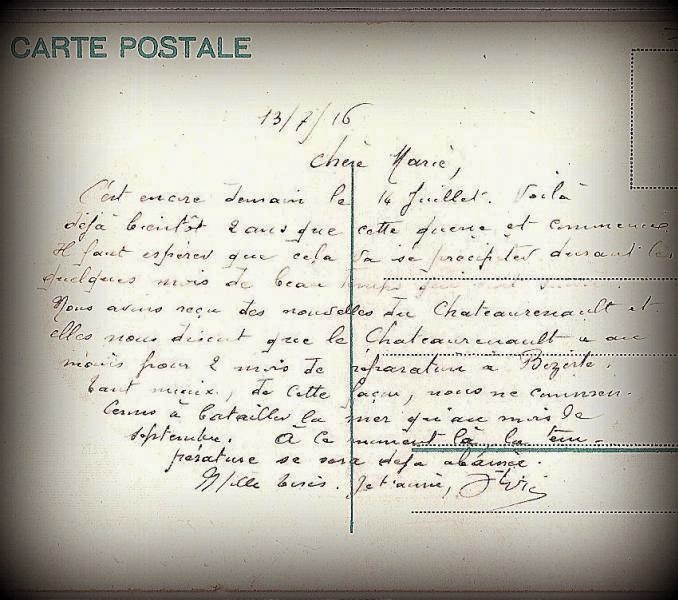 CARTE POSTALE
13/7/16
Chère Marie,
C'est encore demain le 14 Juillet. Voilà
déjà bientôt 2 ans que cette guerre est commencée
Il faut espérer que cela va se précipiter durant les
quelques mois de beau temps qui vont
Nous avons reçu des nouvelles du Chateaurenault et
elles nous disent que le Chateaurenault a au
moins pour 2 mois de réparation à Bizerte.
tant mieux, de cette façon, nous ne commen-
cerons à batailler la mer qu'au mois de
septembre. À ce moment là, la tem-
pérature se sera déjà abaissée.
Mille baisers. Je t'aime,